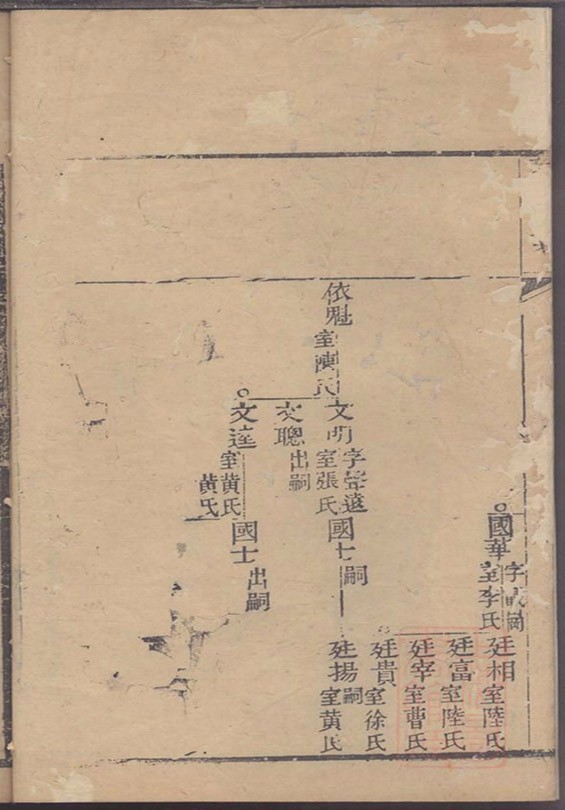 國華
字
室李氏
廷相
室陸氏
廷富
室陸氏
廷宰
室曹氏
廷貴
室徐氏
廷揚
嗣
室黃氏
依魁
室陳氏
文明
字聲遠
室張氏
國士
嗣
文聰
出嗣
文達
室黃氏
黃氏
國士
出嗣